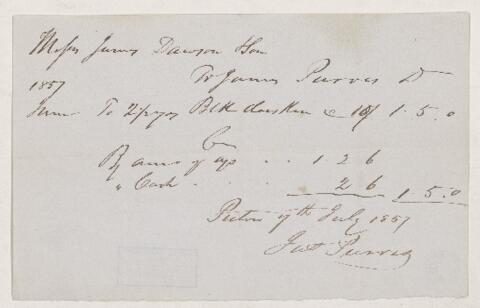 Messrs James Dawson & Son
To James Purves Dr
1857
June To 2½ yds Blk doeskin @ 10/ 1 . 5 . 0
Cr
By amt of a/c . . 1 2 6
" Cash . . . . 2 6 1 . 5 . 0
Pictou 7th July 1857
Jas Purves